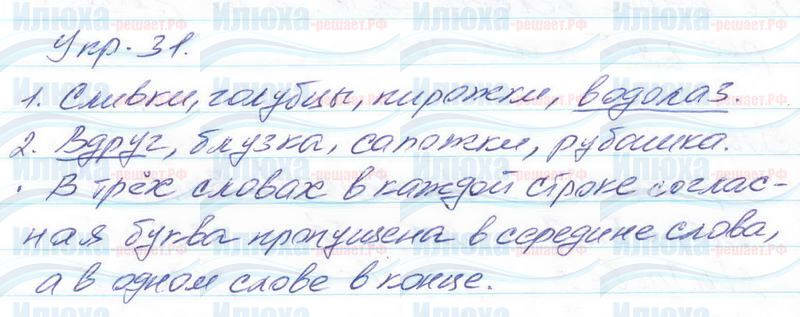 Упр. 31.
1. Сливки, голубцы, пирожки, водолаз.
2. Вдруг, блузка, сапожки, рубашка.
• В трёх словах в каждой строке соглас-
ная буква пропущена в середине слова,
а в одном слове в конце.